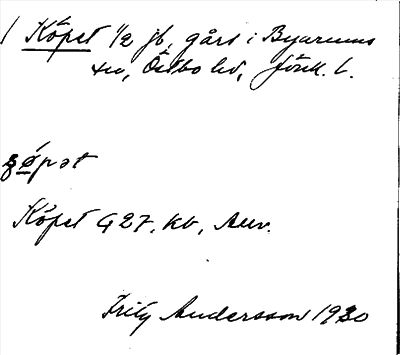 / Köpet 1/2 jb, gård i Byarums
sn, Östbo hd, Jönk. l.
çö́pət
Köpet G 27. kb, Auv.
Fritz Andersson 1930